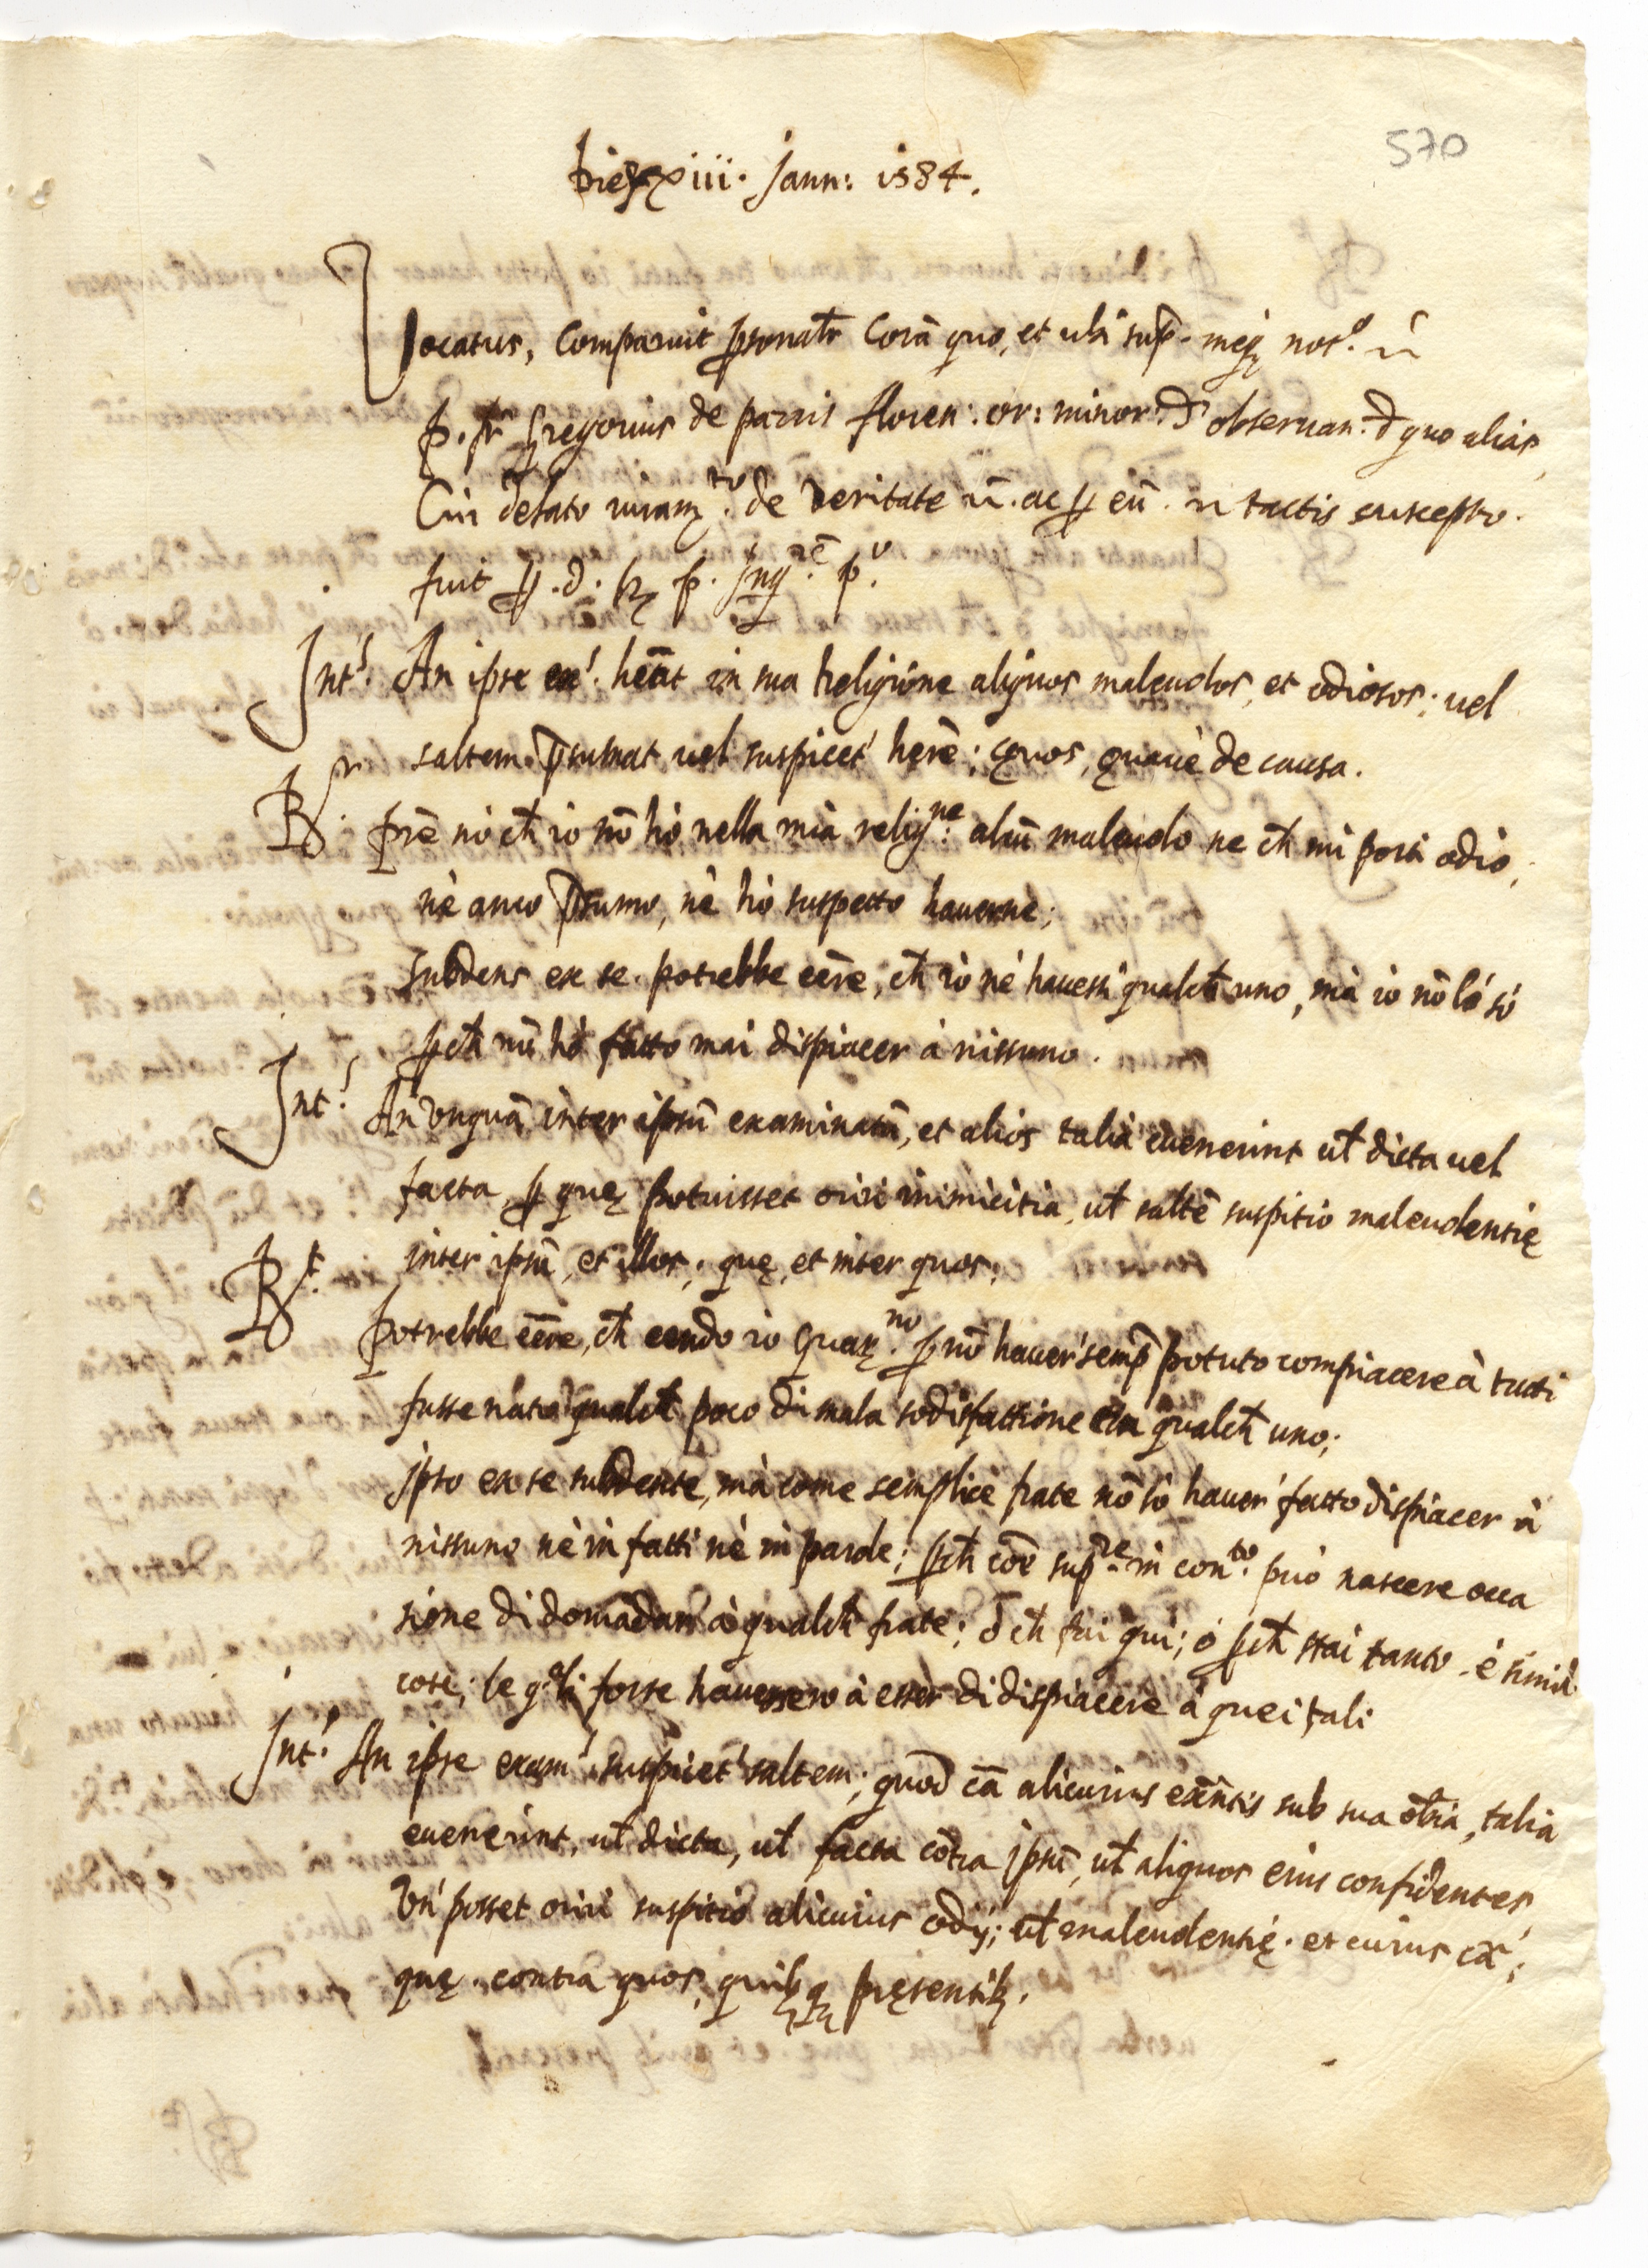 570
Die xxiii. Jann: 1584.
Vocatus, Comparuit psonalr Corā quo, et ubi sup. meiq; not.
p. fr Gregorius de parvis floren: or: minor: d' observan. d quo alias
Cui delato iuram.to de veritate ac p eū tactis suscepto.
fuit p. d. p. Inq.re p.
Int.s An ipse ex.s heāt in sua Religione aliquos malevolos, et odiosos; vel
saltem psumat vel suspicet' herē; quos, quave de causa.
R.t prē nò ch io nō hò nella mia relig.ne alcū malevolo ne ch mi porti odio,
nè anco psumo, nè hò suspetto haverne;
subdens ex se. potrebbe eēre, ch io nè havessi qualch uno, mà io nō lò sò
pch nō hò fatto mai dispiacer à nissuno.
Int.s An unquā inter ipsū examinatū, et alios talia evenerint ul dicta vel
facta p quę potuisset oriri inimicitia, ul saltē suspitio malevolentię
inter ipsū, et illos; quę, et inter quos;
R.t potrebbe eēre, ch eendo io Guar.no p nō haver semp potuto compiacere à tutti
fusse nato qualch poco di mala sodisfattione in qualch uno;
ipso ex se subdente, mà come semplice frate nō sò haver' fatto dispiacer à
nissuno nè in fatti nè in parole; pch cōe sup.re in con.to può nascere occa
sione di domādare à qualch frate; ò ch fai qui; ò pch stai tanto. è simil
cose; le q.li forse havessero à esser di dispiacere à quei tali
Int.s An ipse exam.s suspicet' saltem; quod cā alicuius exn̄tis sub sua obia, talia
evenerint, ul dicta, ul facta cōtra ipsū, ul aliquos eius confidentes,
un' posset oriri suspitio alicuius odij; ul malevolentię. et cuius cā;
quę. contra quos, quibq; pręsentib;.